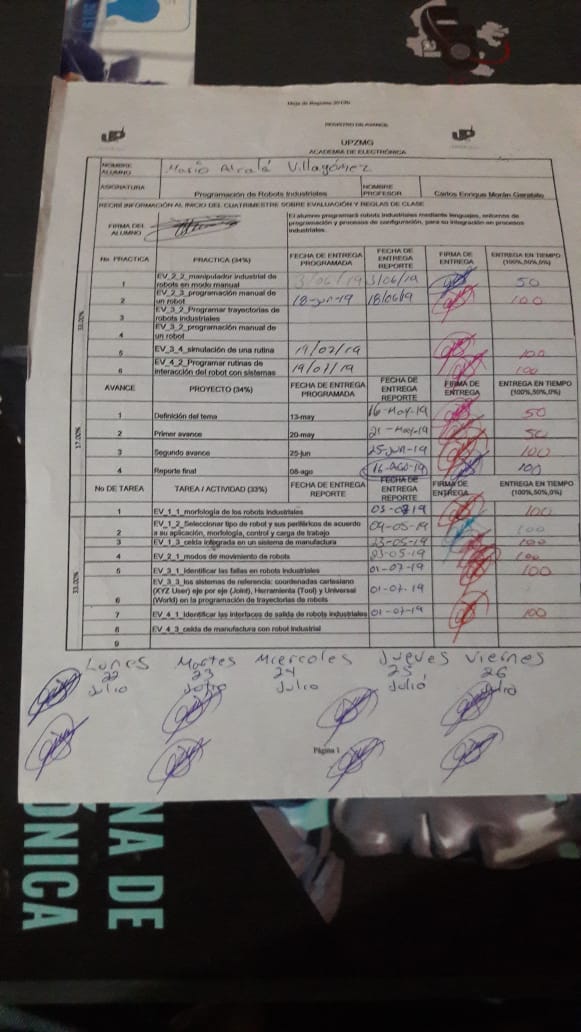 REGISTRO DE AVANCE
UPZMG
ACADEMIA DE ELECTRÓNICA
NOMBRE ALUMNO Mario Alcalá Villagómez
ASIGNATURA Programación de Robots Industriales NOMBRE PROFESOR Carlos Enrique Morán
RECIBÍ INFORMACIÓN AL INICIO DEL CUATRIMESTRE SOBRE EVALUACIÓN Y REGLAS DE CLASE
FIRMA DEL ALUMNO El alumno programará robots industriales mediante lenguajes, entornos de programación y procesos de configuración, para su integración en procesos industriales.
No. PRACTICA PRACTICA (34%) FECHA DE ENTREGA PROGRAMADA FECHA DE ENTREGA REPORTE FIRMA DE ENTREGA ENTREGA EN TIEMPO (100%,50%,0%)
33.00%
1 EV_2_2_manipulador industrial de robots en modo manual 3/06/19 3/06/19 50
2 EV_2_3_programación manual de un robot 18-jun-19 18/06/19 100
3 EV_3_2_Programar trayectorias de robots industriales
4 EV_3_2_programación manual de un robot
5 EV_3_4_simulación de una rutina 19/07/19 100
6 EV_4_2_Programar rutinas de interacción del robot con sistemas 19/07/19 100
AVANCE PROYECTO (34%) FECHA DE ENTREGA PROGRAMADA FECHA DE ENTREGA REPORTE FIRMA DE ENTREGA ENTREGA EN TIEMPO (100%,50%,0%)
17.00%
1 Definición del tema 13-may 16-May-19 50
2 Primer avance 20-may 21-May-19 50
3 Segundo avance 25-jun 25-jun-19 100
4 Reporte final 06-ago 16-AGO-19 100
No DE TAREA TAREA / ACTIVIDAD (33%) FECHA DE ENTREGA REPORTE FECHA DE ENTREGA REPORTE FIRMA DE ENTREGA ENTREGA EN TIEMPO (100%,50%,0%)
33.00%
1 EV_1_1_morfología de los robots industriales 100
2 EV_1_2_Seleccionar tipo de robot y sus periféricos de acuerdo a su aplicación, morfología, control y carga de trabajo 09-05-19 100
3 EV_1_3_celda integrada en un sistema de manufactura 23-05-19 100
4 EV_2_1_modos de movimiento de robots 23-05-19 100
5 EV_3_1_Identificar las fallas en robots industriales 01-07-19 100
6 EV_3_3_los sistemas de referencia: coordenadas cartesiano (XYZ User) eje por eje (Joint), Herramienta (Tool) y Universal (World) en la programación de trayectorias de robots 01-07-19
7 EV_4_1_Identificar las interfaces de salida de robots industriales 01-07-19 100
8 EV_4_3_celda de manufactura con robot industrial
9
Lunes Martes Miercoles Jueves Viernes
22 23 24 25 26
Julio Julio Julio Julio Julio
Página 1
NA DE
ÓNICA